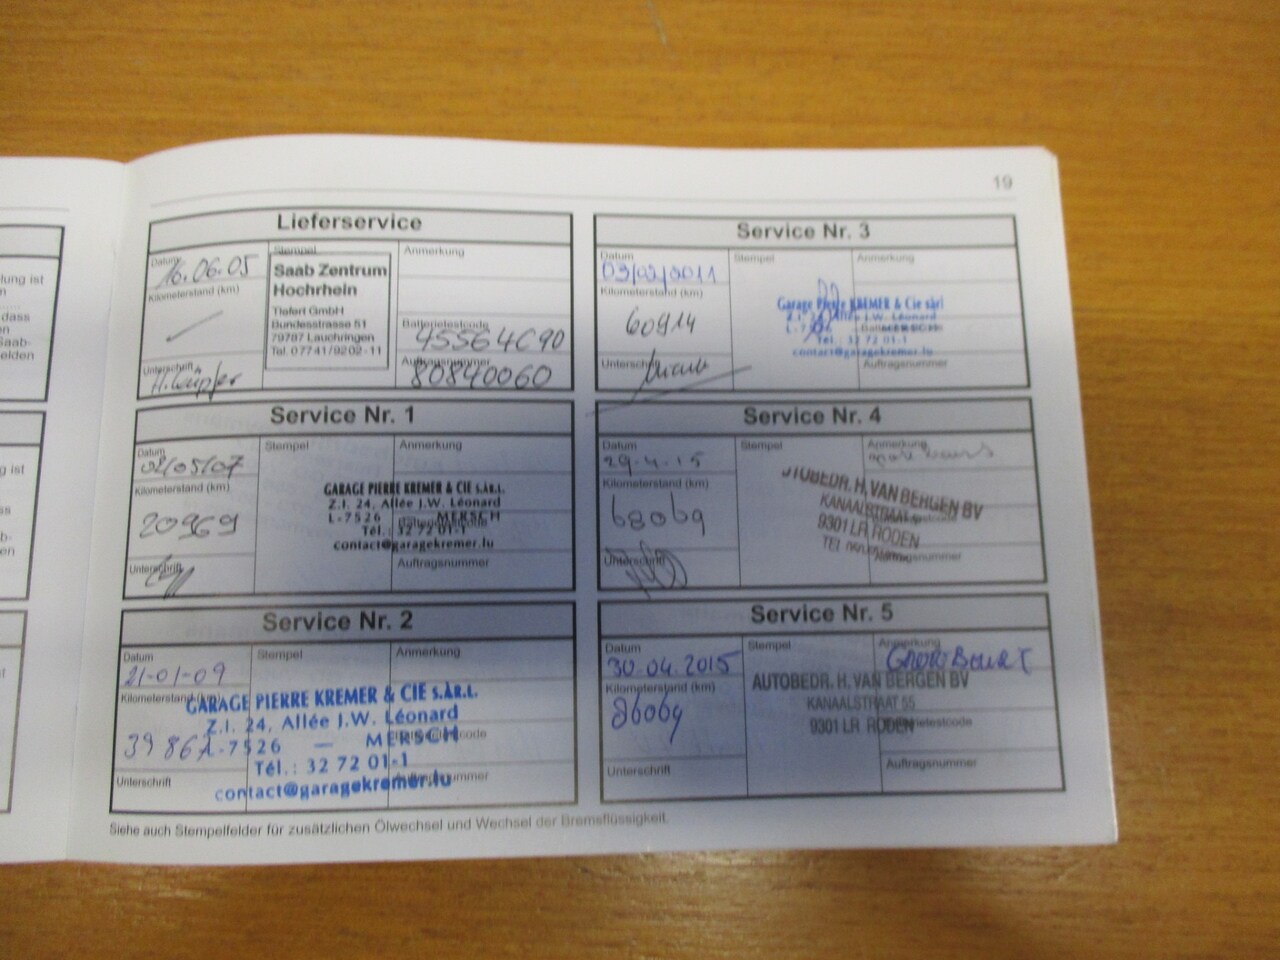 19
Lieferservice
Datum
16.06.05
Kilometerstand (km)
Unterschrift
Stempel
Saab Zentrum
Hochrhein
Tiefert GmbH
Bundesstrasse 51
79787 Lauchringen
Tel. 07741/9202-11
Anmerkung
Batterietestcode
45564C90
Auftragsnummer
80840060
Service Nr. 1
Datum
02/05/07
Kilometerstand (km)
20969
Unterschrift
Stempel
Anmerkung
GARAGE PIERRE KREMER & CIE S.À.R.L.
Z.I. 24, Allée J.W. Léonard
L-7526 MERSCH
Tél.: 32 72 01-1
contact@garagekremer.lu
Auftragsnummer
Service Nr. 2
Datum
21-01-09
Kilometerstand (km)
Unterschrift
Stempel
Anmerkung
GARAGE PIERRE KREMER & CIE S.ÀR.L.
Z.I. 24, Allée J.W. Léonard
L-7526 — MERSCH
Tél.: 32 72 01-1
contact@garagekremer.lu
Service Nr. 3
Datum
03/02/2011
Kilometerstand (km)
60914
Unterschrift
Stempel
Anmerkung
Garage Pierre KREMER & Cie sàrl
Z.I. 24, Allée J.W. Léonard
Tél.: 32 72 01-1
contact@garagekremer.lu
Auftragsnummer
Service Nr. 4
Datum
29-4-15
Kilometerstand (km)
68069
Unterschrift
Stempel
Anmerkung
AUTOBEDR. H. VAN BERGEN BV
KANAALSTRAAT
9301 LR RODEN
Auftragsnummer
Service Nr. 5
Datum
30-04-2015
Kilometerstand (km)
Unterschrift
Stempel
Anmerkung
AUTOBEDR. H. VAN BERGEN BV
KANAALSTRAAT 55
9301 LR RODEN
Auftragsnummer
Siehe auch Stempelfelder für zusätzlichen Ölwechsel und Wechsel der Bremsflüssigkeit.